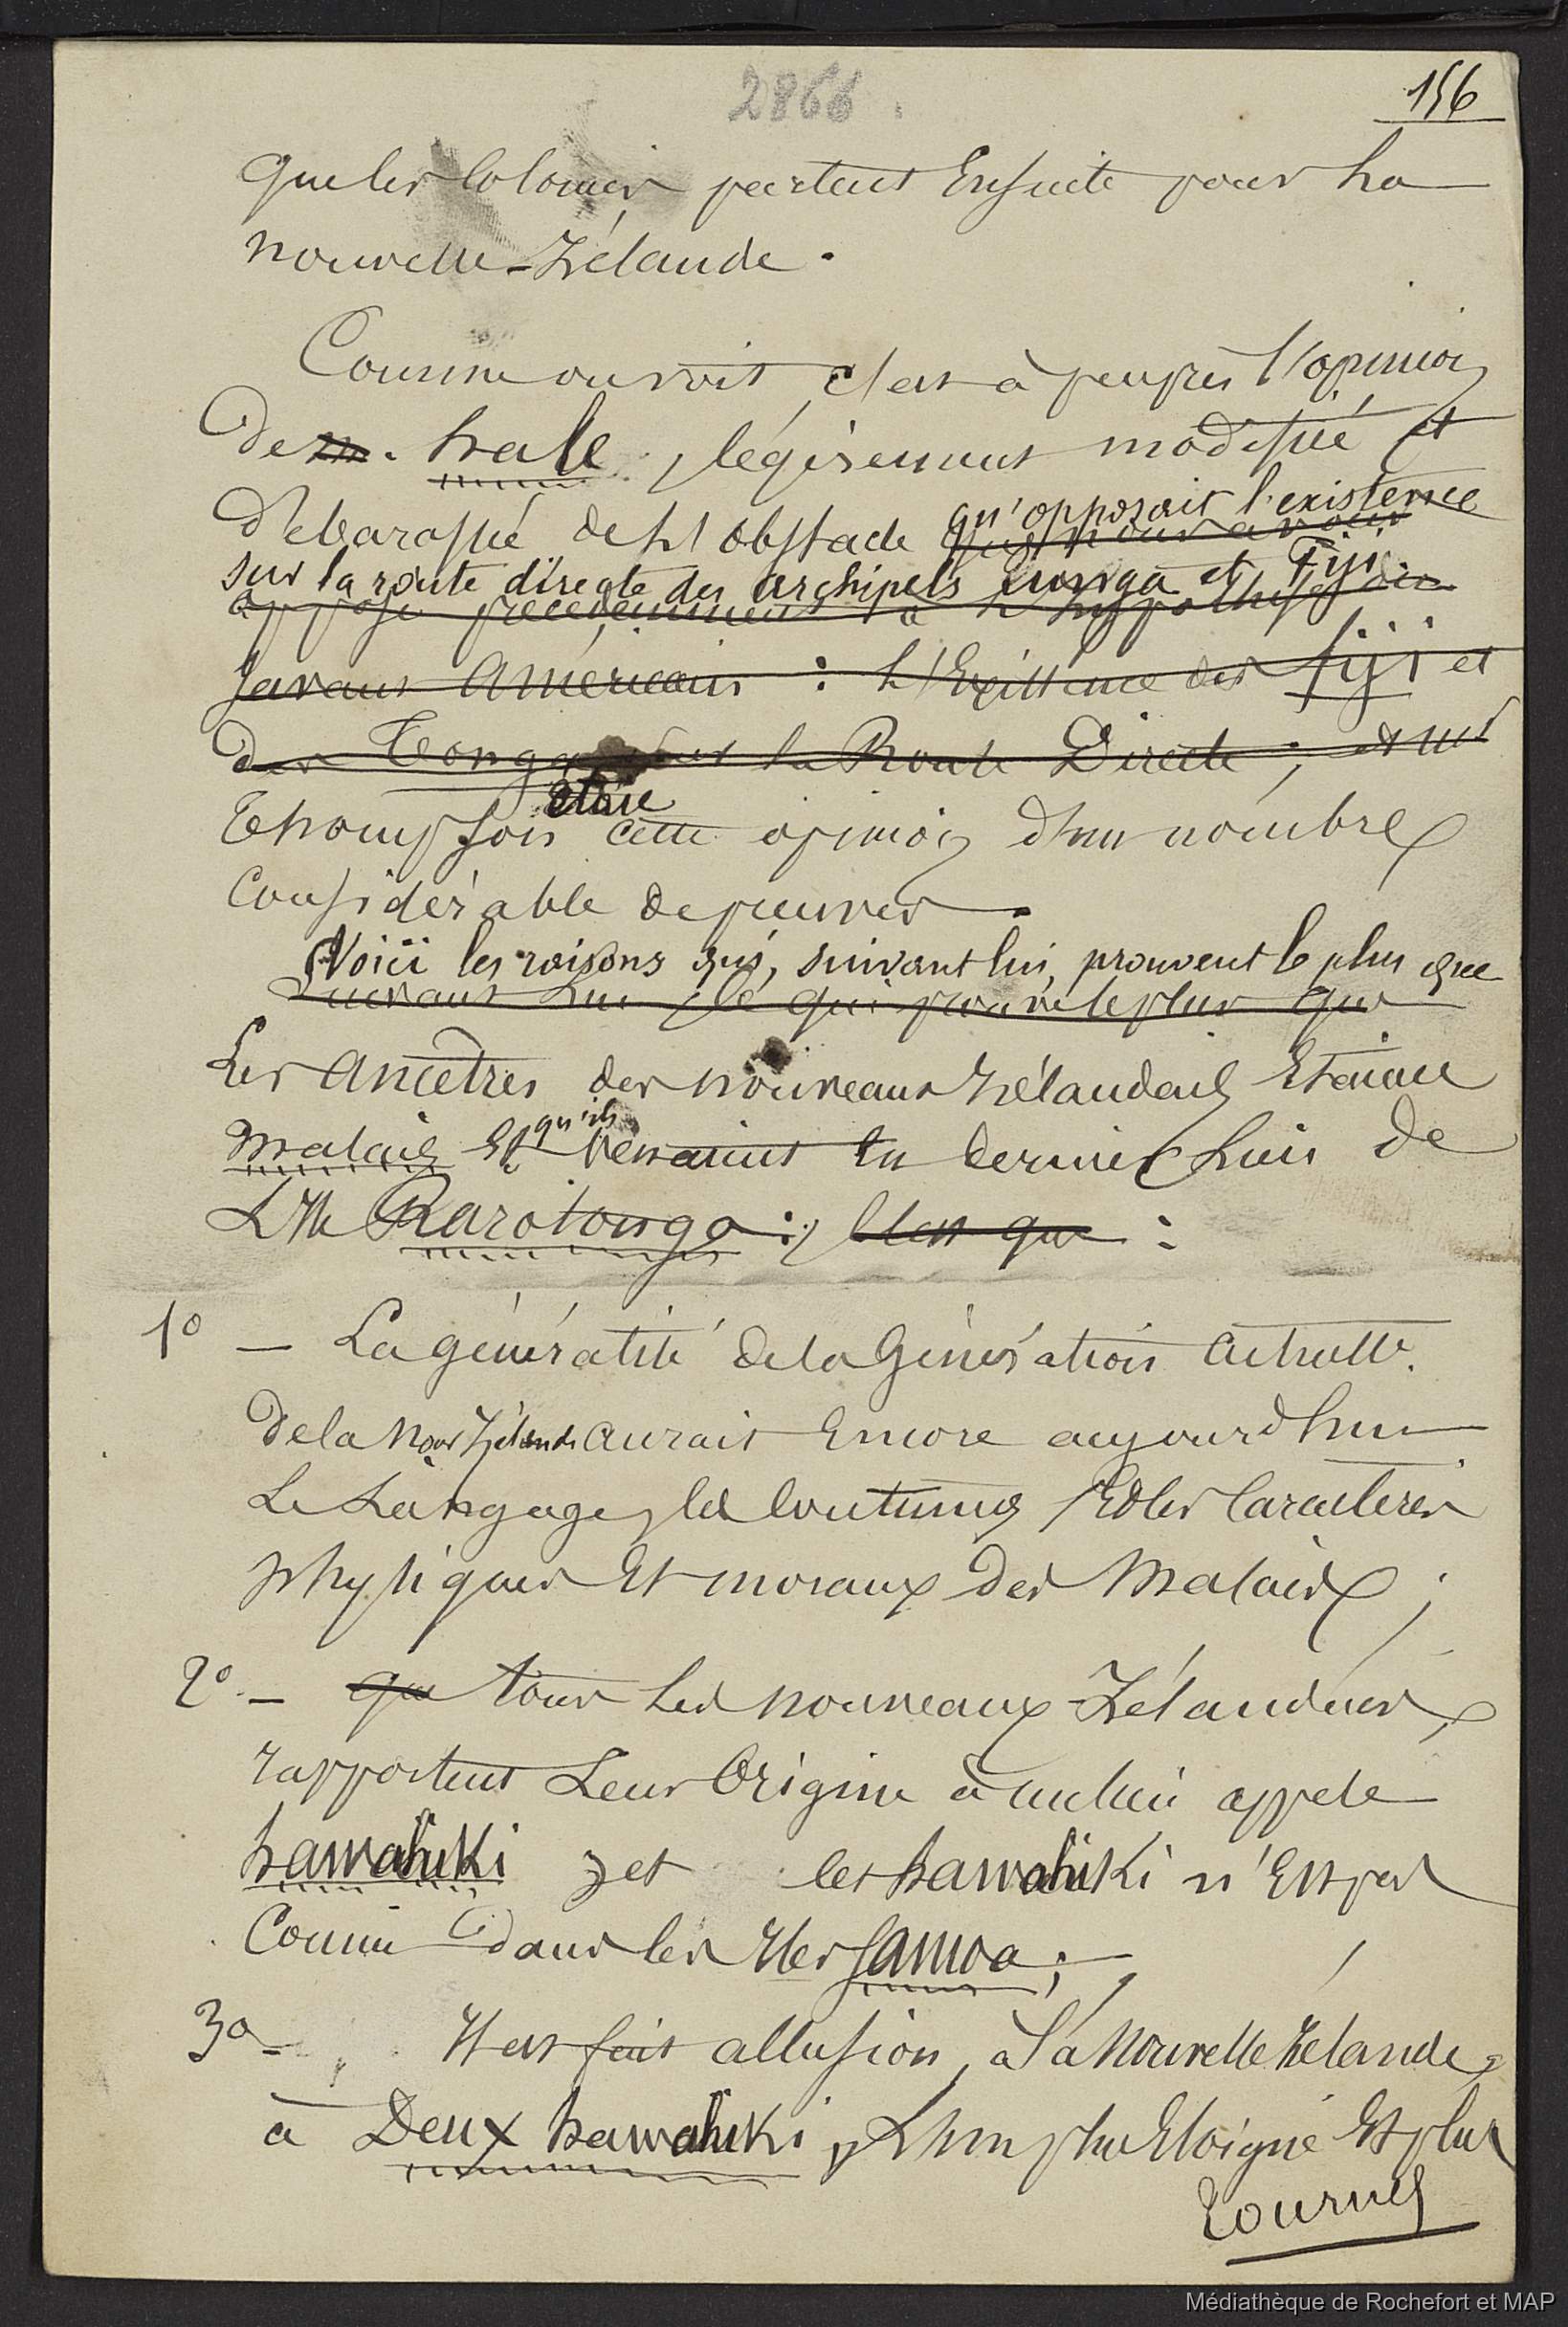 2866.
156
que les Colonies partent Ensuite pour La
nouvelle-Zélande.
Comme on voit, c'est à peu près l'opinion
de m. hale, légèrement modifié et
débarassée de l'obstacle qu'opposait l'existence
sur la route directe des archipels Tunga et Fiji
opposé précédemment à l'hypothèse du
Savant américain : L'Existence des fiji et
des Tonga sur la Route Directe ; et
étaie
Thompson cette opinion d'un nombre
Considérable de preuves.
Voici les raisons qui, suivant lui, prouvent le plus que
Suivant Lui, ce qui prouve le plus que
Les ancêtres des nouveaux Zélandais Etaient
qu'ils
malais Et venaient en dernier Lieu de
L'Ile Rarotonga : C'est que :
1° – La généralité de la Génération actuelle
de la Nouv Zélande aurait Encore aujourd'hui
Le Langage, les Coutumes, Et les Caractères
physiques Et moraux des Malais ;
2° – que tous Les nouveaux-Zélandais
rapportent Leur Origine à un lieu appelé
hawahiki, et les hawahiki n'Est pas
Connu dans les Iles Samoa ;
3° – Il est fait allusion, à la Nouvelle Zélande,
à Deux hawahiki, L'un plus Eloigné Et plus
Tournez
Médiathèque de Rochefort et MAP